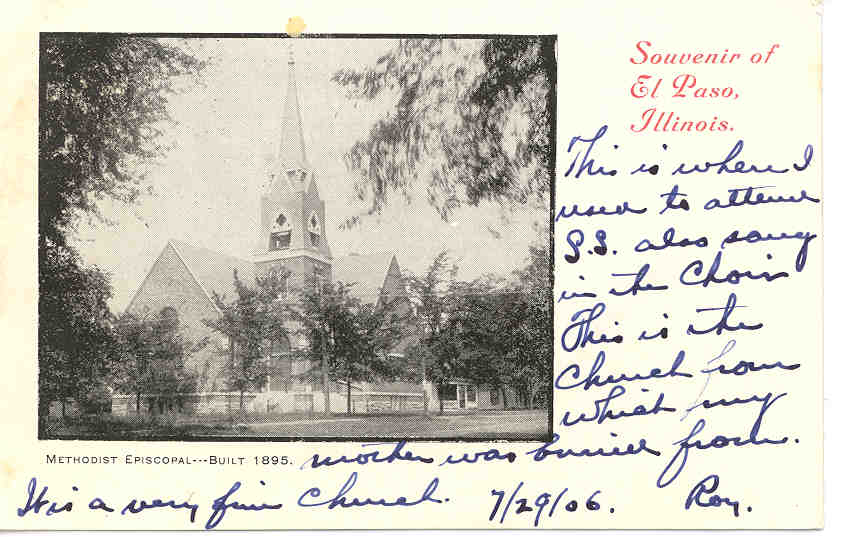 Souvenir of
El Paso,
Illinois.
This is where I
used to attend
S.S. also sang
in the Choir
This is the
Church from
which my
METHODIST EPISCOPAL---BUILT 1895. mother was buried from.
It is a very fine Church. 7/29/06. Roy.